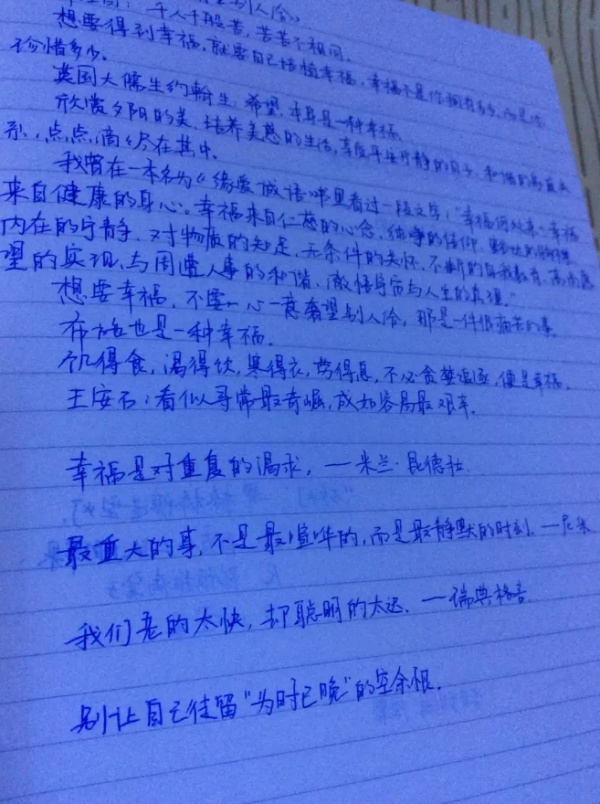 千人千般苦,苦苦不相同。
想要得到幸福,就要自己培植幸福,幸福不是你拥有多少,而是你
珍惜多少。
英国大儒生约翰生:希望,本身是一种幸福。
欣赏夕阳的美,培养美感的生活,享受平安宁静的日子,
点点滴滴尽在其中。
我曾在一本名为《 》书里看过一段文字:“幸福何处来:幸福
来自健康的身心。幸福来自仁慈的心念,纯净的信仰,
内在的宁静,对物质的知足,无条件的关怀,不断的自我教育,高尚愿
望的实现,与周遭人事的和谐,彻悟宇宙与人生的真理。”
想要幸福,不要一心一意奢望别人给,那是一件很痛苦的事。
布施也是一种幸福。
饥得食,渴得饮,寒得衣,劳得息,不必贪婪追逐,便是幸福。
王安石:看似寻常最奇崛,成如容易最艰辛。
幸福是对重复的渴求,—米兰·昆德拉
最重大的事,不是最喧哗的,而是最静默的时刻。—尼采
我们老的太快,却聪明的太迟.—瑞典格言
别让自己徒留“为时已晚”的空余恨.